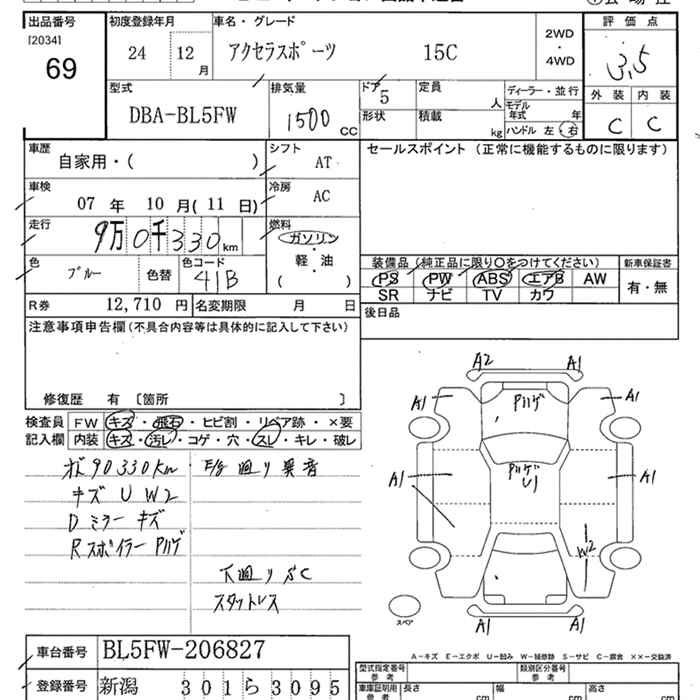 出品番号 初度登録年月 車名・グレード 評価点
[2034]
69
24 12 月
アクセラスポーツ 15C
2WD
・
4WD
3.5
型式 排気量 ドア 定員 ディーラー・並行 外装 内装
DBA-BL5FW 1500 CC
5 人
モデル年式 年
形状 積載 kg ハンドル 左・右
C C
車歴 シフト セールスポイント (正常に機能するものに限ります)
自家用・( ) AT
車検 冷房
07 年 10 月 (11 日) AC
走行 燃料
9万0千330km
ガソリン
軽・油
( )
色 ブルー 色替 色コード 41B
装備品 (純正品に限り○をつけてください) 新車保証書
PS PW ABS エアB AW 有・無
SR ナビ TV カワ
R券 12,710 円 名変期限 月 日
後日品
注意事項申告欄 (不具合内容等は具体的に記入して下さい)
修復歴 有 〔箇所 〕
検査員 FW キズ・飛石・ヒビ割・リペア跡・×要
記入欄 内装 キズ・汚レ・コゲ・穴・スレ・キレ・破レ
90330km F/S 廻り異音
キズ U W2
Dミラー キズ
Rスポイラー Pハゲ
下廻り SC
スタットレス
A2 A1
A1 Pハゲ A1
A1 Pハゲ A1
U1
W2
スペア
A1 A1
A-キズ E-エクボ U-凹み W-補修跡 S-サビ C-腐食 ××-交換済
車台番号 BL5FW-206827
型式指定番号 類別区分番号
参考 参考
登録番号 新潟 301 ら 3095
車庫証明用 長さ 幅 高さ
参考 cm cm cm